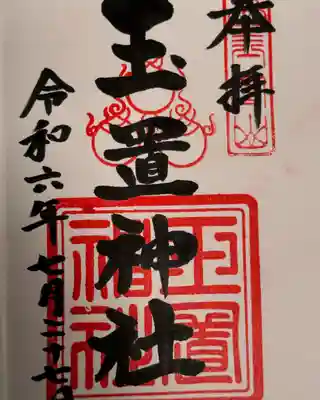 奉拝
玉置神社
令和六年七月二十七日
玉置
神社